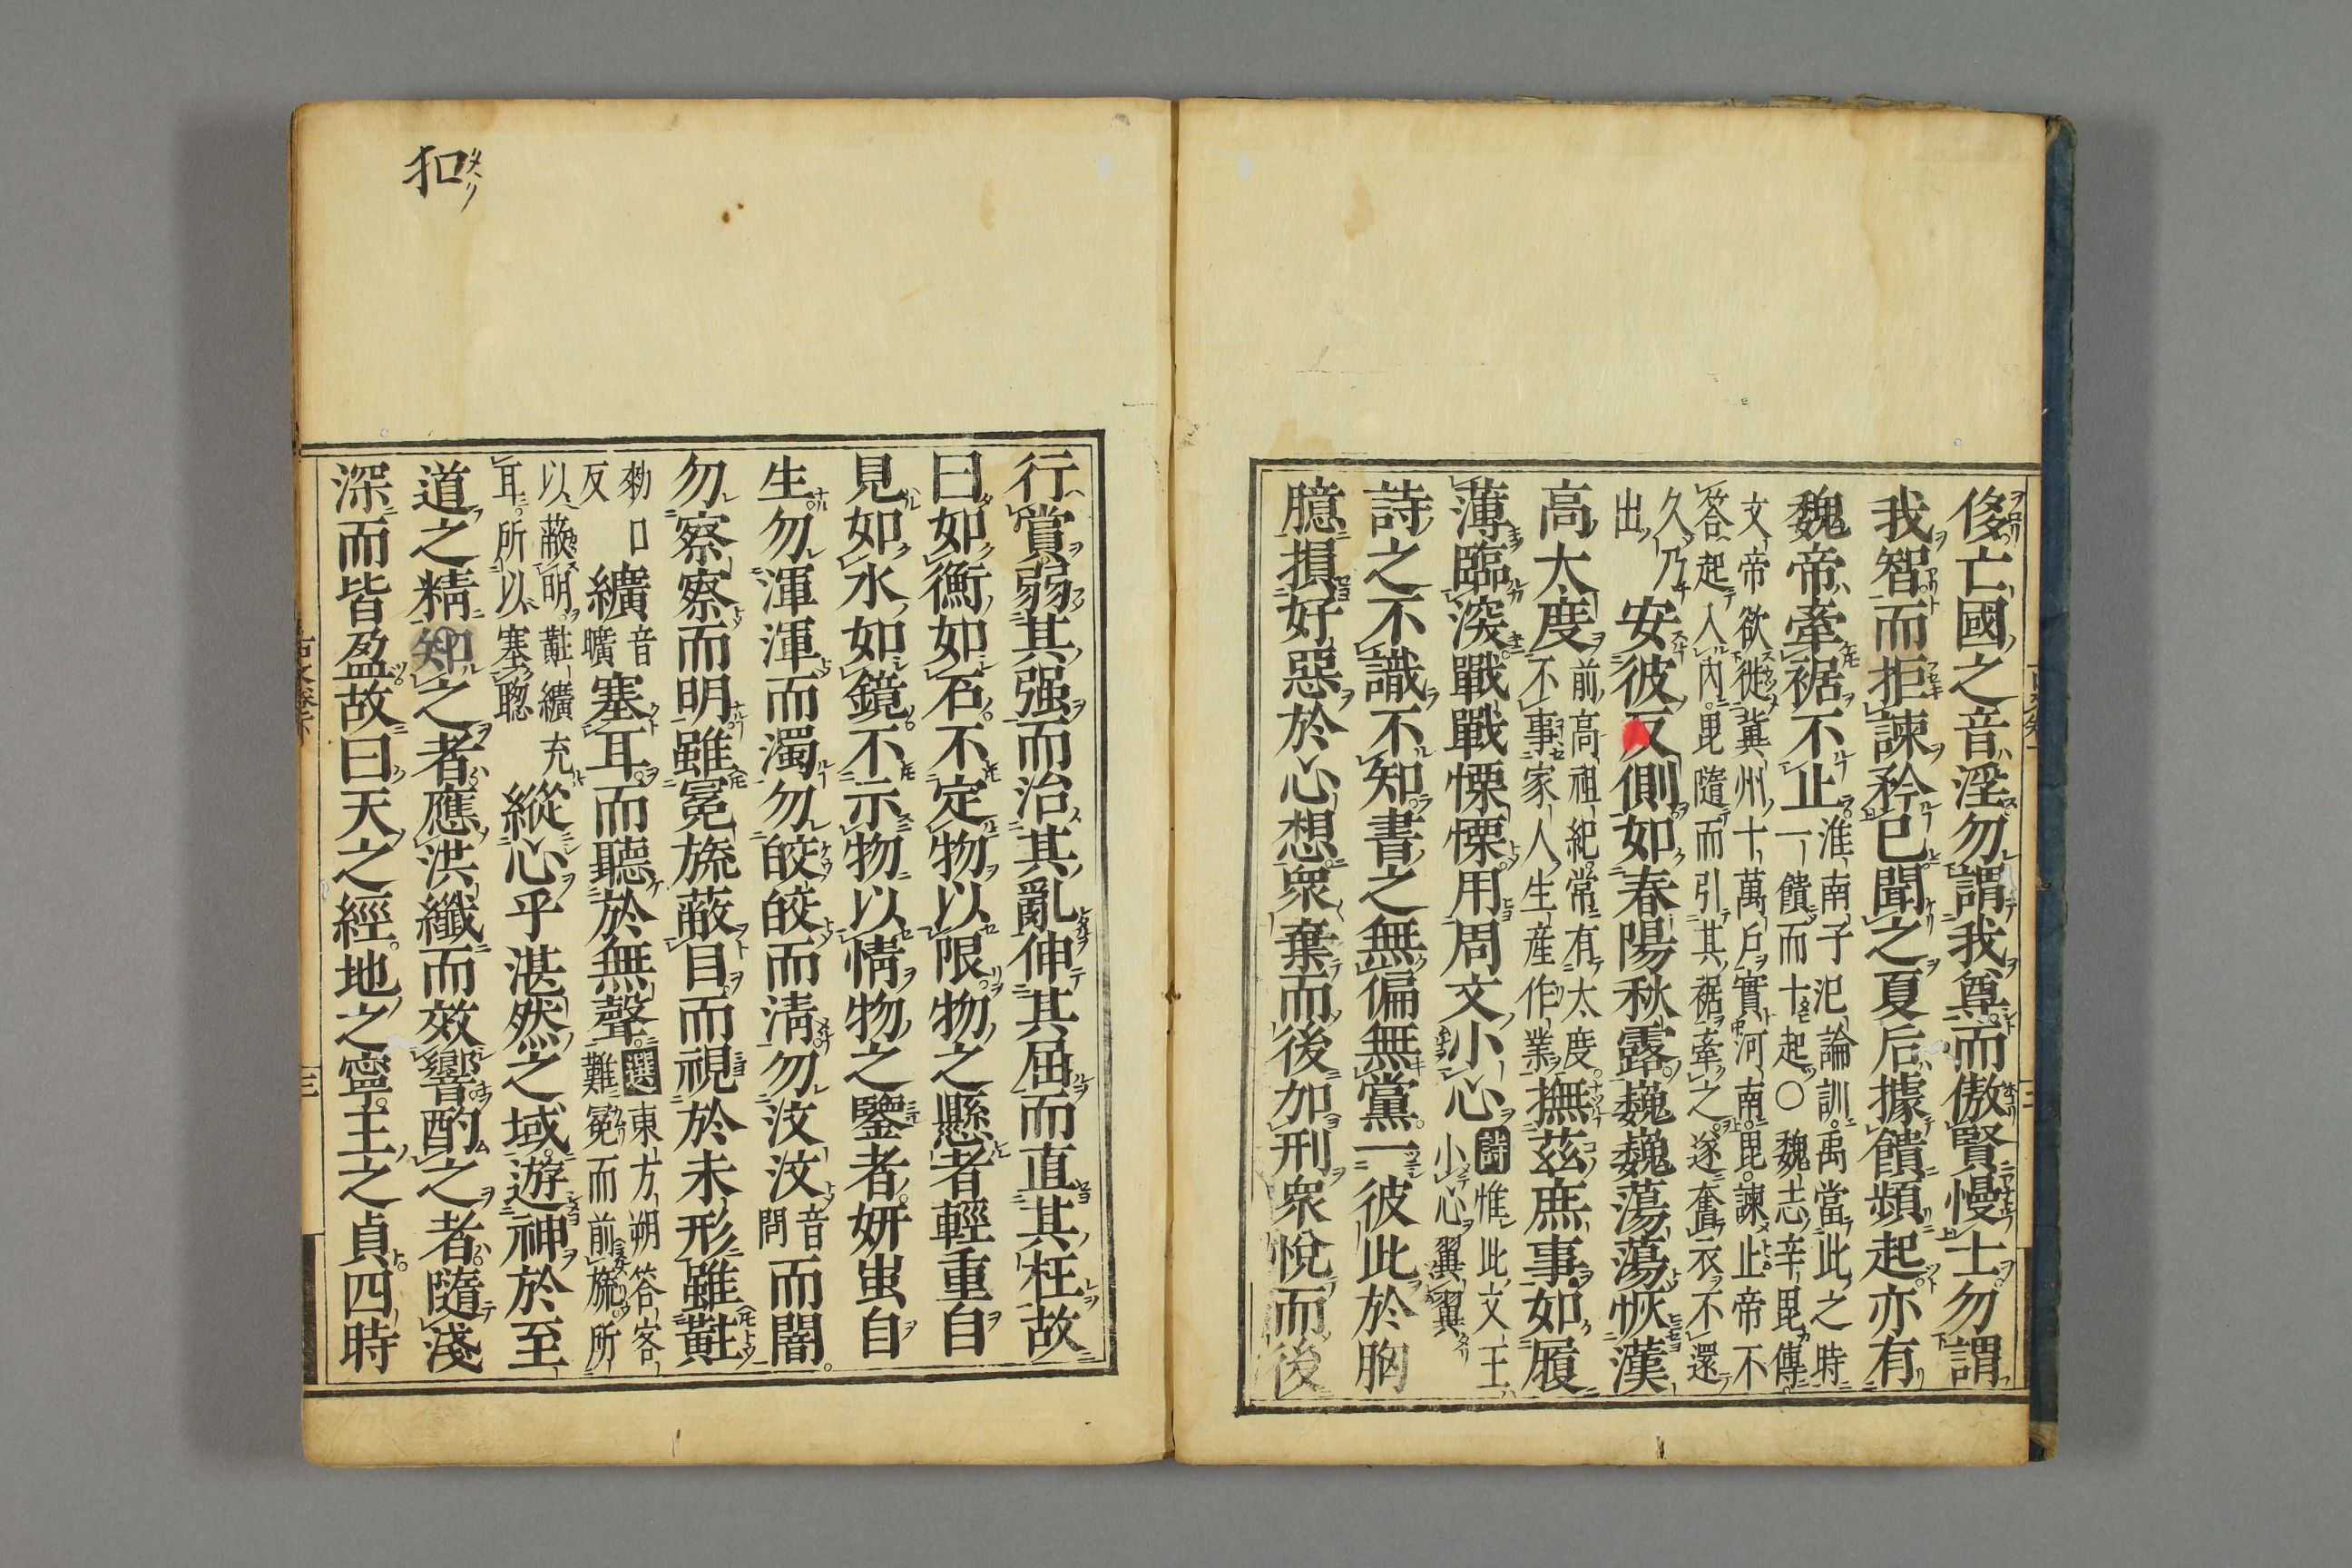 侈亡國之音淫勿謂我尊而傲賢慢士勿謂
我智而拒諫矜己聞之夏后據饋頻起亦有
魏帝牽裾不止
淮南子氾論訓禹當此之時
一饋而十起○魏志辛毘傳
文帝欲徙冀州十萬戶實河南毘諫止帝不
答起入內毘隨而引其裾牽之遂奮衣不還
久乃
出
安彼反側如春陽秋露巍巍蕩蕩恢漢
高大度
前高祖紀常有大度
不事家人生産作業
撫茲庶事如履
薄臨深戰戰慄慄用周文小心
詩惟此文王
小心翼翼
詩之不識不知書之無偏無黨一彼此於胸
臆損好惡於心想衆棄而後加刑衆悅而後
行賞弱其强而治其亂伸其屈而直其枉故
曰如衡如石不定物以限物之懸者輕重自
見如水如鏡不示物以情物之鑒者妍蚩自
生勿渾渾而濁勿皎皎而淸勿汶汶
音
問
而闇
勿察察而明雖冕旒蔽目而視於未形雖黈
口
反
纊
音
曠
塞耳而聽於無聲
選東方朔答客
難冕而前旒所
以蔽明黈纊充
耳所以塞聰
縱心乎湛然之域遊神於至
道之精知之者應洪纖而效響酌之者隨淺
深而皆盈故曰天之經地之寧王之貞四時
扣